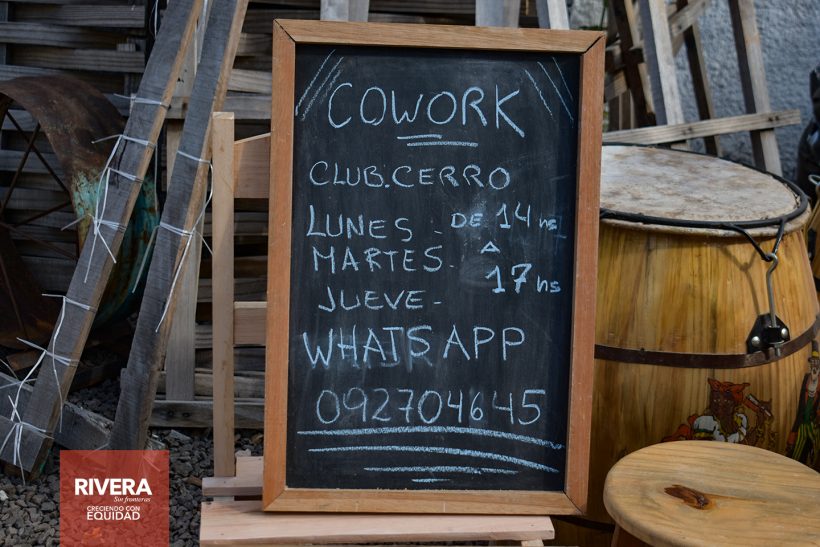 COWORK
CLUB.CERRO
LUNES - DE 14 hs
MARTES - A 17 hs
JUEVE-
WHATSAPP
092704645
RIVERA
Sin fronteras
CRECIENDO CON
EQUIDAD